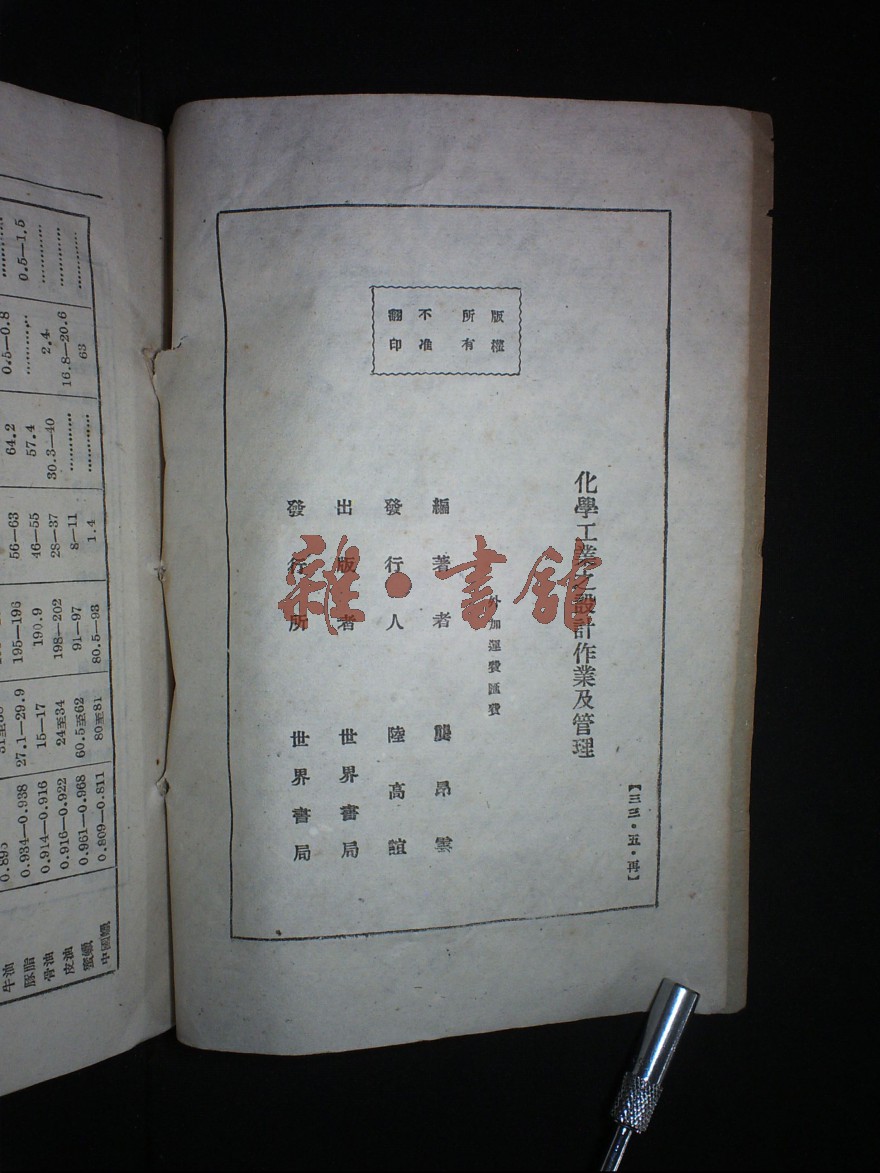 版權
所有
不准
翻印
【三三・五・再】
化學工業之設計作業及管理
外加運費匯費
編著者 龔昂雲
發行人 陸高誼
出版者 世界書局
發行所 世界書局
雜·書館
牛油 0.895
豚脂 0.934—0.938 27.1—29.9 195—196 56—63 64.2 0.5—0.8 …………
骨油 0.914—0.916 15—17 190.9 46—55 57.4 ………… 0.5—1.5
皮油 0.916—0.922 24至34 198—202 28—37 30.3—40 2.4 …………
蜜蠟 0.961—0.968 60.5至62 91—97 8—11 ………… 16.8—20.6 …………
中國蠟 0.809—0.811 80至81 80.5—93 1.4 ………… 63 …………